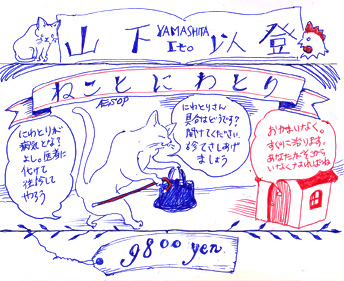 山下 YAMASHITA Ito 以登
ねことにわとり
ÆSOP
にわとりが
病気とな?
よし。医者に
化けて
往診して
やろう
にわとりさん
具合はどうです?
開けてください。
診てさしあげ
ましょう
おかまいなく。
すぐに治ります。
あなたがそこから
いなくなればね
9800 yen.